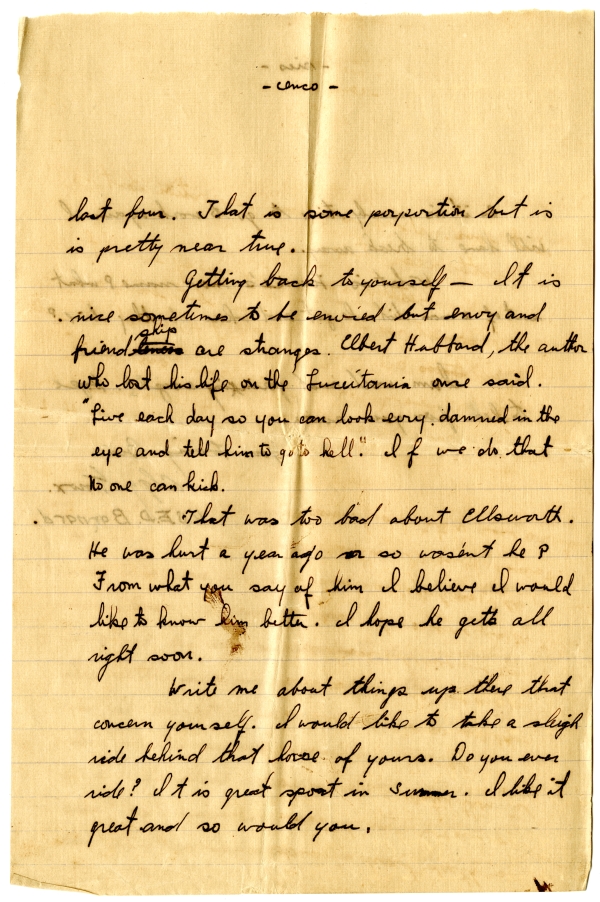 - cinco -
last four. That is some porportion but is
is pretty near true.
Getting back to yourself — It is
nice sometimes to be envied but envy and
ship
friend are stranges. Elbert Hubbard, the author
who lost his life on the Luceitania once said.
"Live each day so you can look evry damned in the
eye and tell him to go to hell." If we do that
no one can kick.
That was too bad about Ellsworth.
He was hurt a year ago or so wasent he?
From what you say of him I believe I would
like to know him better. I hope he gets all
right soon.
Write me about things up there that
concern yourself. I would like to take a sleigh
ride behind that horse of yours. Do you ever
ride? It is great sport in Summer. I like it
great and so would you.